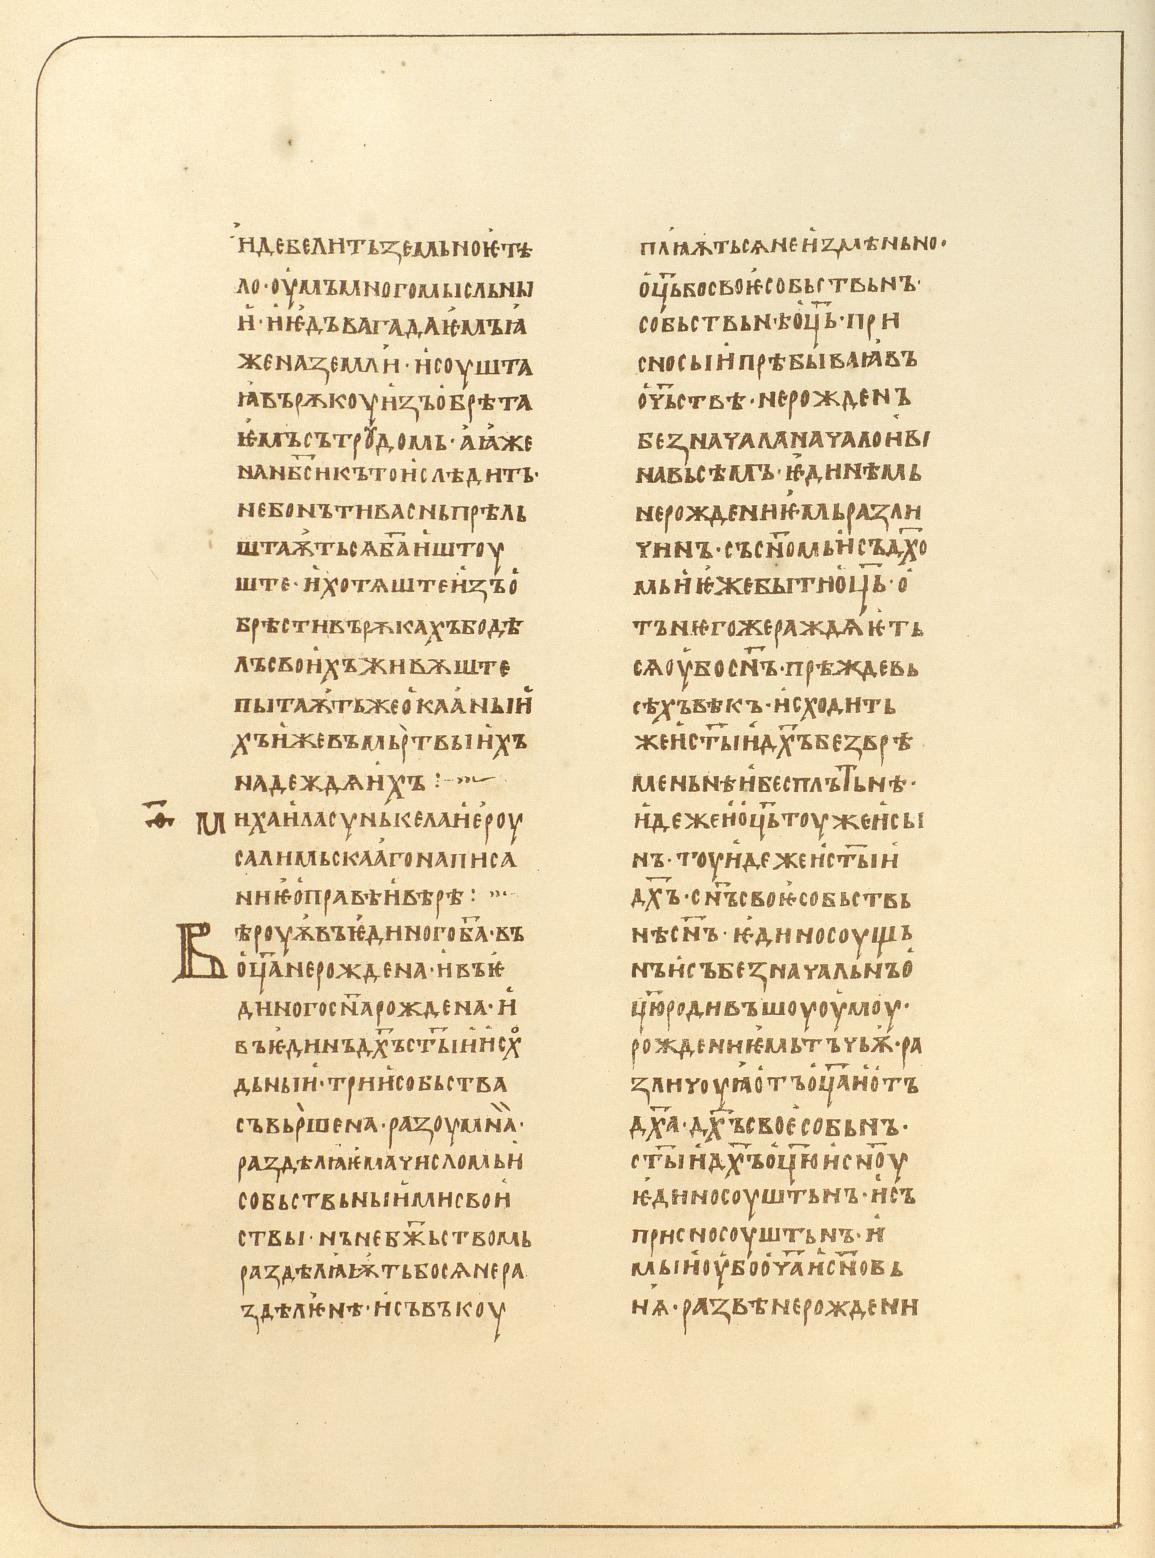 и҆дебелить земльноѥ тѣ
ло· оу҆мъмногомꙑсльнꙑ
и҆· и҆ѥ҆дъвагадаѥ҆мъꙗ҆
женаземли҆· и҆соушта
ꙗ҆върѫкоуи҆зъо҆брѣта
ѥ҆мъсътроудомь· а҆ꙗ҆же
нанб҃синкътои҆слѣдить·
небонътивасньпрѣль
штаѭ҆тьсѧба҃и҆штоу
ште· и҆хотѧштеи҆зъо҆
брѣстивърѫкахъбодѣ
лъсвои҆хъживѫште
пꙑтаѭ҆тьжео҆каа҆нꙑи҆
хъи҆жевъмьр҆твꙑи҆хъ
надеждѧи҆хъ :~
ѿ михаи҆ласунькелаи҆е҆роу
салимьскаа҆гонаписа
ниѥо҆правѣи҆вѣрѣ :~
Вѣроуѭ҆въѥ҆диногоба҃· въ
о҆ц҃а҆нерождена· и҆въѥ҆
диногосн҃арождена· и҆
въѥ҆динъдх҃ъст҃ꙑи҆и҆сх
дьнꙑи҆· трии҆собьства
съвьр҆шена· разоумн҃а·
раздѣлꙗѥмачисломьи҆
собьствьнꙑи҆мисвои҆
ствꙑ· нънебж҃ьствомь
раздѣлꙗѭ҆тьбосѧнера
здѣлѥнѣ· и҆съвъкоу
плꙗѭ҆тьсѧнеи҆змѣньно·
о҆ц҃ьбосвоѥ҆собьствьнъ·
собьствьнѣо҆ц҃ь· при
сносꙑи҆прѣбꙑваꙗ҆въ
о҆ч҃ьствѣ· нерожденъ
безначаланачалои҆вꙑ
навьсѣмъ· ѥ҆динѣмь
нерожденіѥмьразли
чинъ· съсн҃омьи҆съдх҃о
мьи҆ѥ҆жебꙑтио҆ц҃ь· о҆
тънѥгожераждаѥ҆ть
сѧоу҆босн҃ъ· прѣждевь
сѣхъвѣкъ· и҆сходить
жеи҆ст҃ꙑи҆дх҃ъбезврѣ
меньнѣи҆бесплътьнѣ·
и҆дежеи҆о҆ц҃ьтоужеи҆сꙑ
нъ· тоуи҆дежеи҆ст҃ꙑи҆
дх҃ъ· сн҃ъсвоѥ҆собьствь
нѣсн҃ъ· ѥ҆диносоущь
нъи҆събезначальнъо҆
ц҃ю҆родивъшоуоу҆моу·
рожденіѥмьтъчьѭ҆· ра
зличоуꙗ҆о҆тъо҆ц҃аи҆о҆тъ
дх҃а· дх҃ъсвое҆собьнъ·
ст҃ꙑи҆дх҃ъо҆ц҃ю҆и҆сн҃оу
ѥ҆диносоуштьнъ· и҆съ
присносоуштьнъ· и҆
мꙑи҆оу҆боо҆ч҃аи҆сн҃овь
нꙗ҆· развѣнерождени